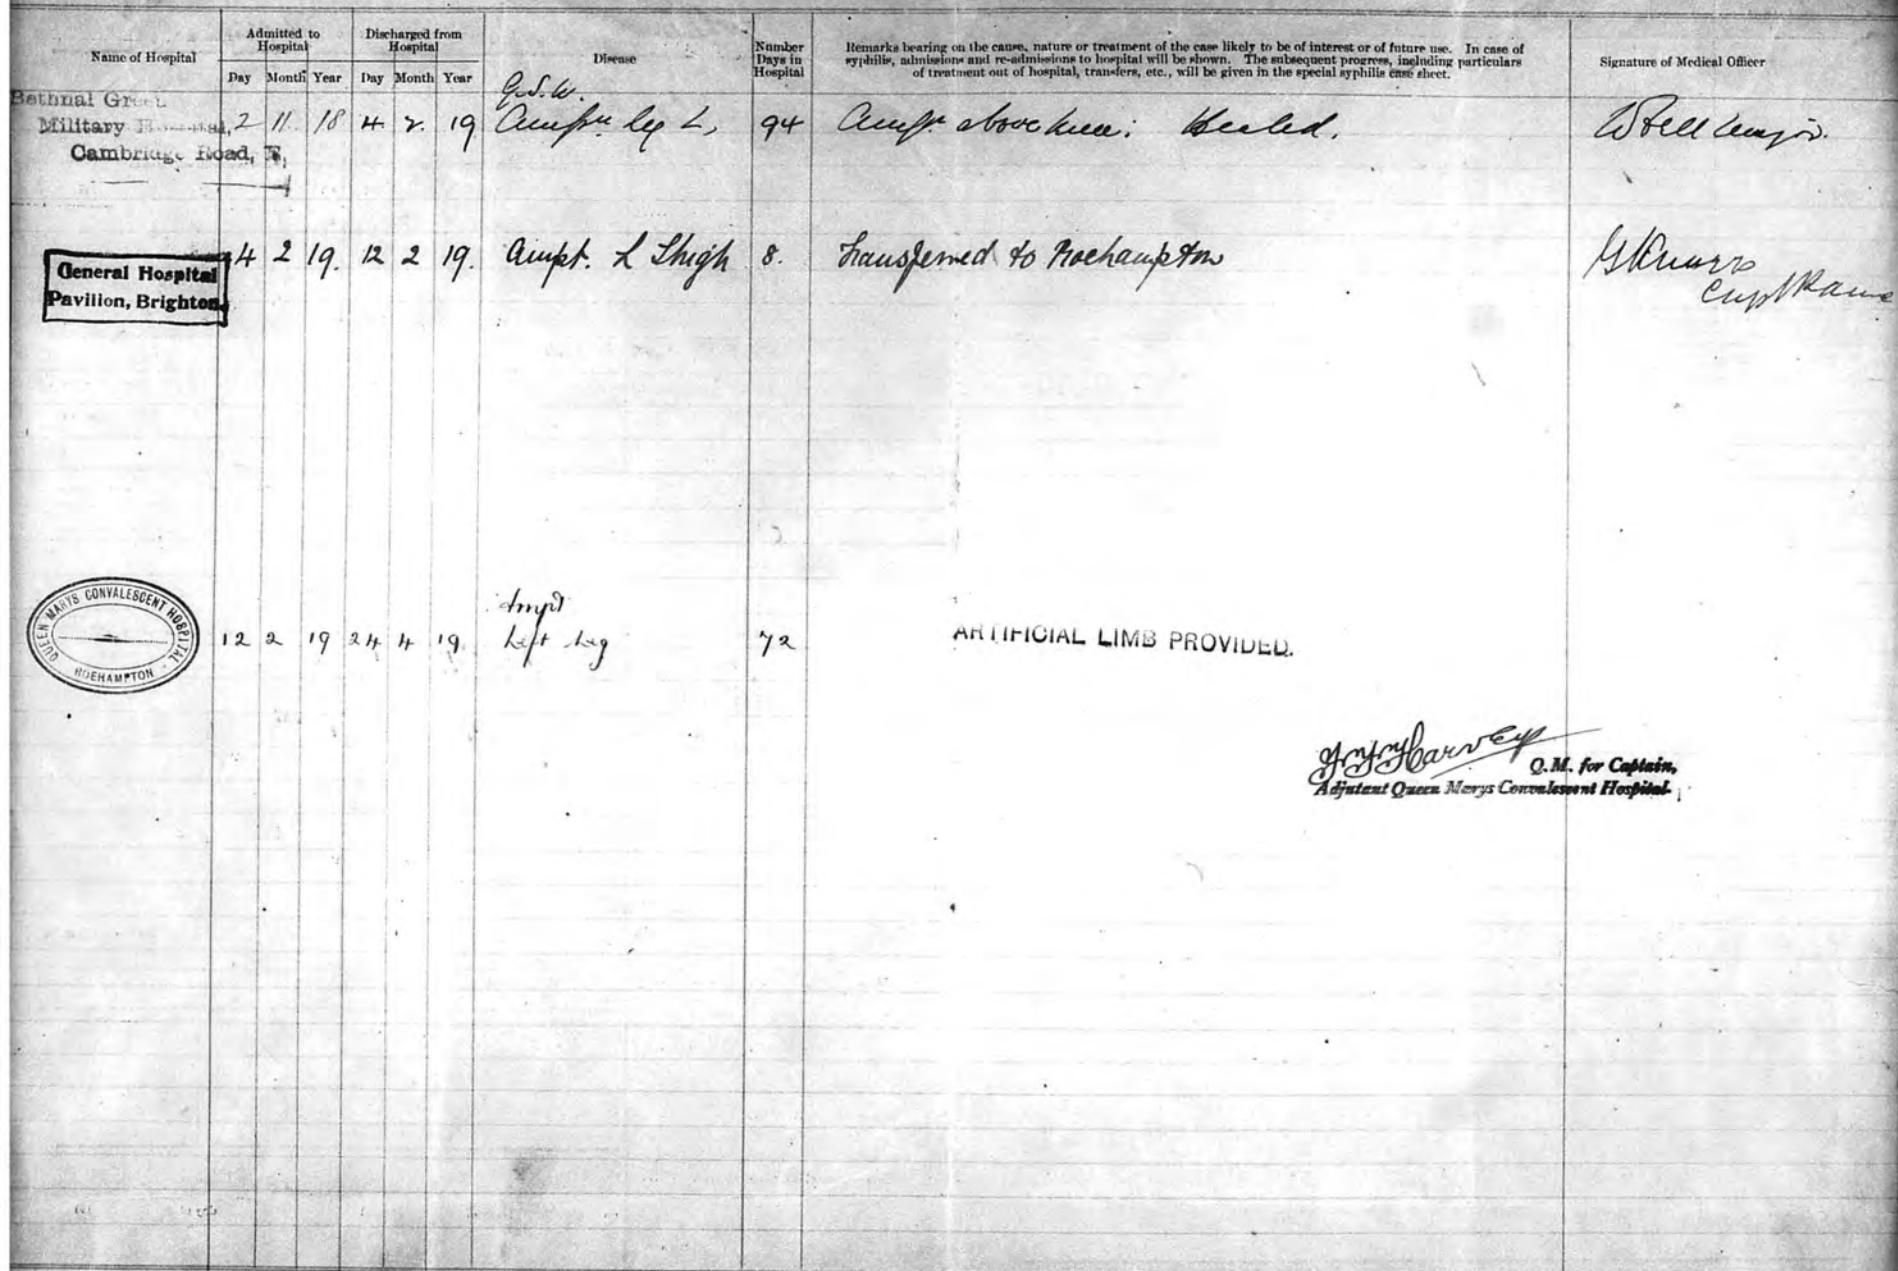 Name of Hospital
Admitted to Hospital
Day Month Year
Discharged from Hospital
Day Month Year
Disease
Number Days in Hospital
Remarks bearing on the cause, nature or treatment of the case likely to be of interest or of future use. In case of
syphilis, admissions and re-admissions to hospital will be shown. The subsequent progress, including particulars
of treatment out of hospital, transfers, etc., will be given in the special syphilis case sheet.
Signature of Medical Officer
Bethnal Green
Military Hospital,
Cambridge Road, E.
2 11 18 4 2 19
G.S.W.
leg L,
94
above knee. Healed.
General Hospital
Pavilion, Brighton.
4 2 19. 12 2 19. Ampt. L Thigh 8. Transferred to Roehampton
QUEEN MARYS CONVALESCENT HOSPITAL
ROEHAMPTON
12 2 19 24 4 19.
Ampt
Left Leg
72
ARTIFICIAL LIMB PROVIDED.
Harvey
Q.M. for Captain,
Adjutant Queen Marys Convalescent Hospital.